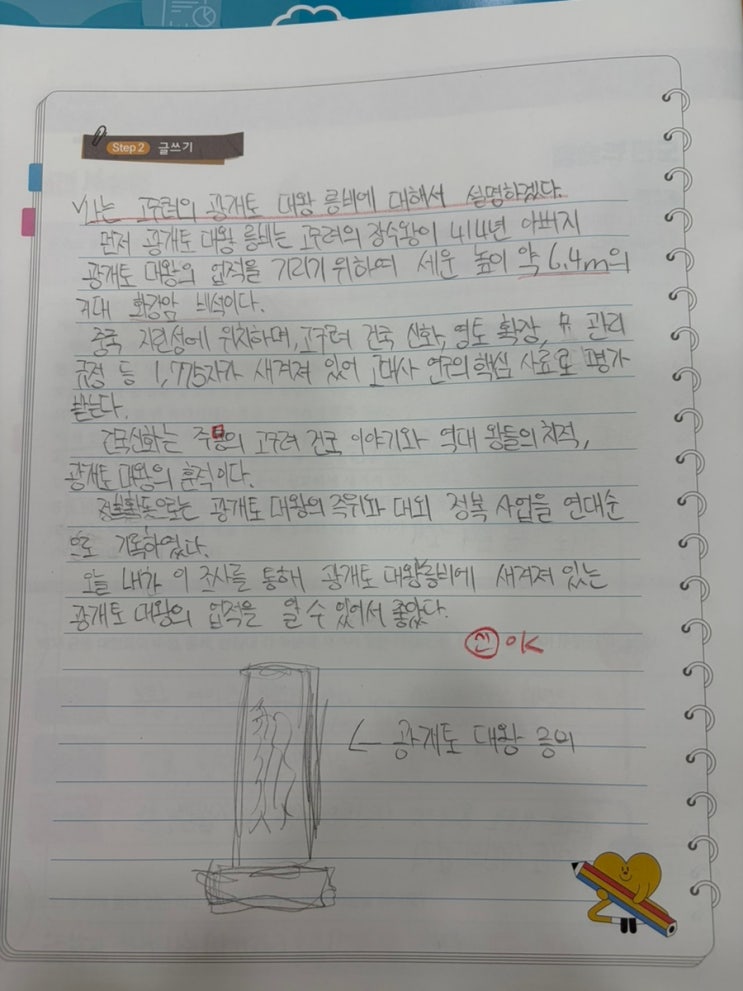 Step 2 글쓰기
나는 고구려의 광개토 대왕 릉비에 대해서 설명하겠다.
먼저 광개토 대왕 릉비는 고구려의 장수왕이 414년 아버지
광개토 대왕의 업적을 기리기 위하여 세운 높이 약 6.4m의
거대 화강암 비석이다.
중국 지린성에 위치하며, 고구려 건국 신화, 영토 확장, 묘 관리
규정 등 1,775자가 새겨져 있어 고대사 연구의 핵심 사료로 평가
받는다.
건국신화는 주몽의 고구려 건국 이야기와 역대 왕들의 치적,
광개토 대왕의 훈적이다.
정복활동으로는 광개토 대왕의 즉위와 대외 정복 사업을 연대순
으로 기록하였다.
오늘 내가 이 조사를 통해 광개토 대왕릉비에 새겨져 있는
광개토 대왕의 업적을 알 수 있어서 좋았다.
인 OK
← 광개토 대왕 릉비